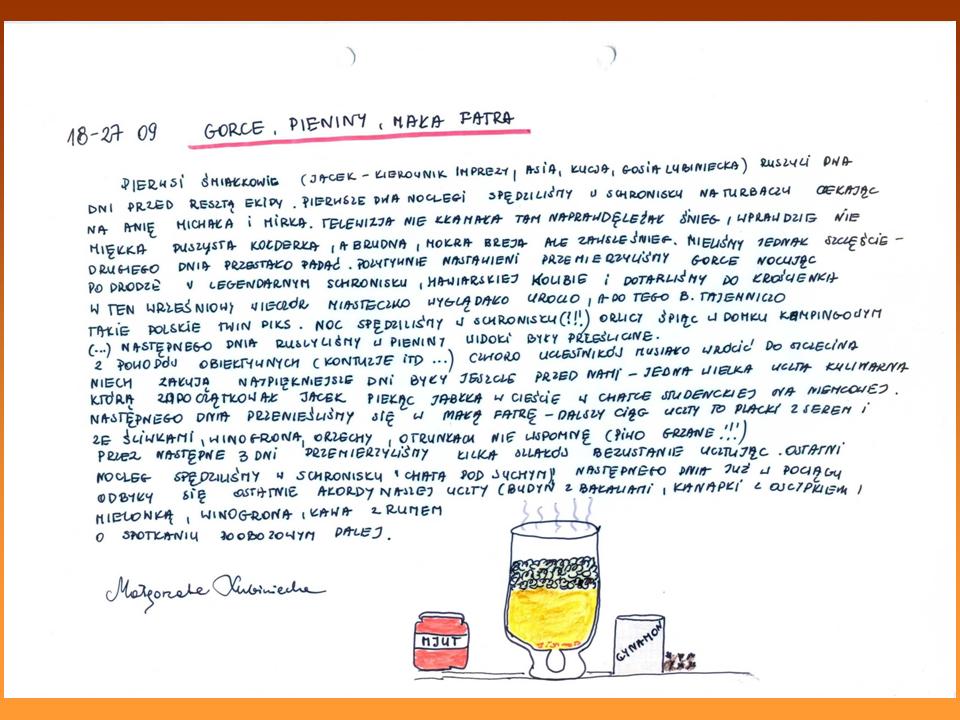 18-27 09 GORCE, PIENINY, MAŁA FATRA
PIERWSI ŚMIAŁKOWIE (JACEK - KIEROWNIK IMPREZY, ASIA, KUCJA, GOSIA LUBINIECKA) RUSZYLI DWA
DNI PRZED RESZTĄ EKIPY. PIERWSZE DWA NOCLEGI SPĘDZILIŚMY W SCHRONISKU NA TURBACZU CZEKAJĄC
NA ANIĘ MICHAŁA I MIRKA. TELEWIZJA NIE KŁAMAŁA TAM NAPRAWDĘ LEŻAŁ ŚNIEG, WPRAWDZIE NIE
MIĘKKA PUSZYSTA KOŁDERKA, A BRUDNA, MOKRA BREJA ALE ZAWSZE ŚNIEG. MIELIŚMY JEDNAK SZCZĘŚCIE -
DRUGIEGO DNIA PRZESTAŁO PADAĆ. POZYTYWNIE NASTAWIENI PRZEMIERZYLIŚMY GORCE NOCUJĄC
PO DRODZE W LEGENDARNYM SCHRONISKU, HAWIARSKIEJ KOLIBIE I DOTARLIŚMY DO KROŚCIENKA
W TEN WRZEŚNIOWY WIECZÓR MIASTECZKO WYGLĄDAŁO UROCZO, A DO TEGO B. TAJEMNICZO
TAKIE POLSKIE TWIN PIKS. NOC SPĘDZILIŚMY W SCHRONISKU (!!!) ORLICY ŚPIĄC W DOMKU KEMPINGOWYM
(...) NASTĘPNEGO DNIA RUSZYLIŚMY W PIENINY WIDOKI BYŁY PRZEŚLICZNE.
Z POWODÓW OBIEKTYWNYCH (KONTUZJE ITD ...) CZWORO UCZESTNIKÓW MUSIAŁO WRÓCIĆ DO SZCZECINA
NIECH ŻAŁUJĄ NAJPIĘKNIEJSZE DNI BYŁY JESZCZE PRZED NAMI - JEDNA WIELKA UCZTA KULINARNA
KTÓRĄ ZAPOCZĄTKOWAŁ JACEK PIEKĄC JABŁKA W CIEŚCIE W CHATCE STUDENCKIEJ NA NIEMCOWEJ.
NASTĘPNEGO DNIA PRZENIEŚLIŚMY SIĘ W MAŁĄ FATRĘ - DALSZY CIĄG UCZTY TO PLACKI Z SEREM I
ZE ŚLIWKAMI, WINOGRONA, ORZECHY, O TRUNKACH NIE WSPOMNĘ (PIWO GRZANE!!!)
PRZEZ NASTĘPNE 3 DNI PRZEMIERZYLIŚMY KILKA SZLAKÓW BEZUSTANIE UCZTUJĄC. OSTATNI
NOCLEG SPĘDZILIŚMY W SCHRONISKU "CHATA POD SUCHYM" NASTĘPNEGO DNIA JUŻ W POCIĄGU
ODBYŁY SIĘ OSTATNIE AKORDY NASZEJ UCZTY (BUDYŃ Z BAKALIAMI, KANAPKI Z OSCYPKIEM I
MIELONKĄ, WINOGRONA, KAWA Z RUMEM
O SPOTKANIU POOBOZOWYM DALEJ.
Małgorzata Lubiniecka
MJUT
CYNAMON